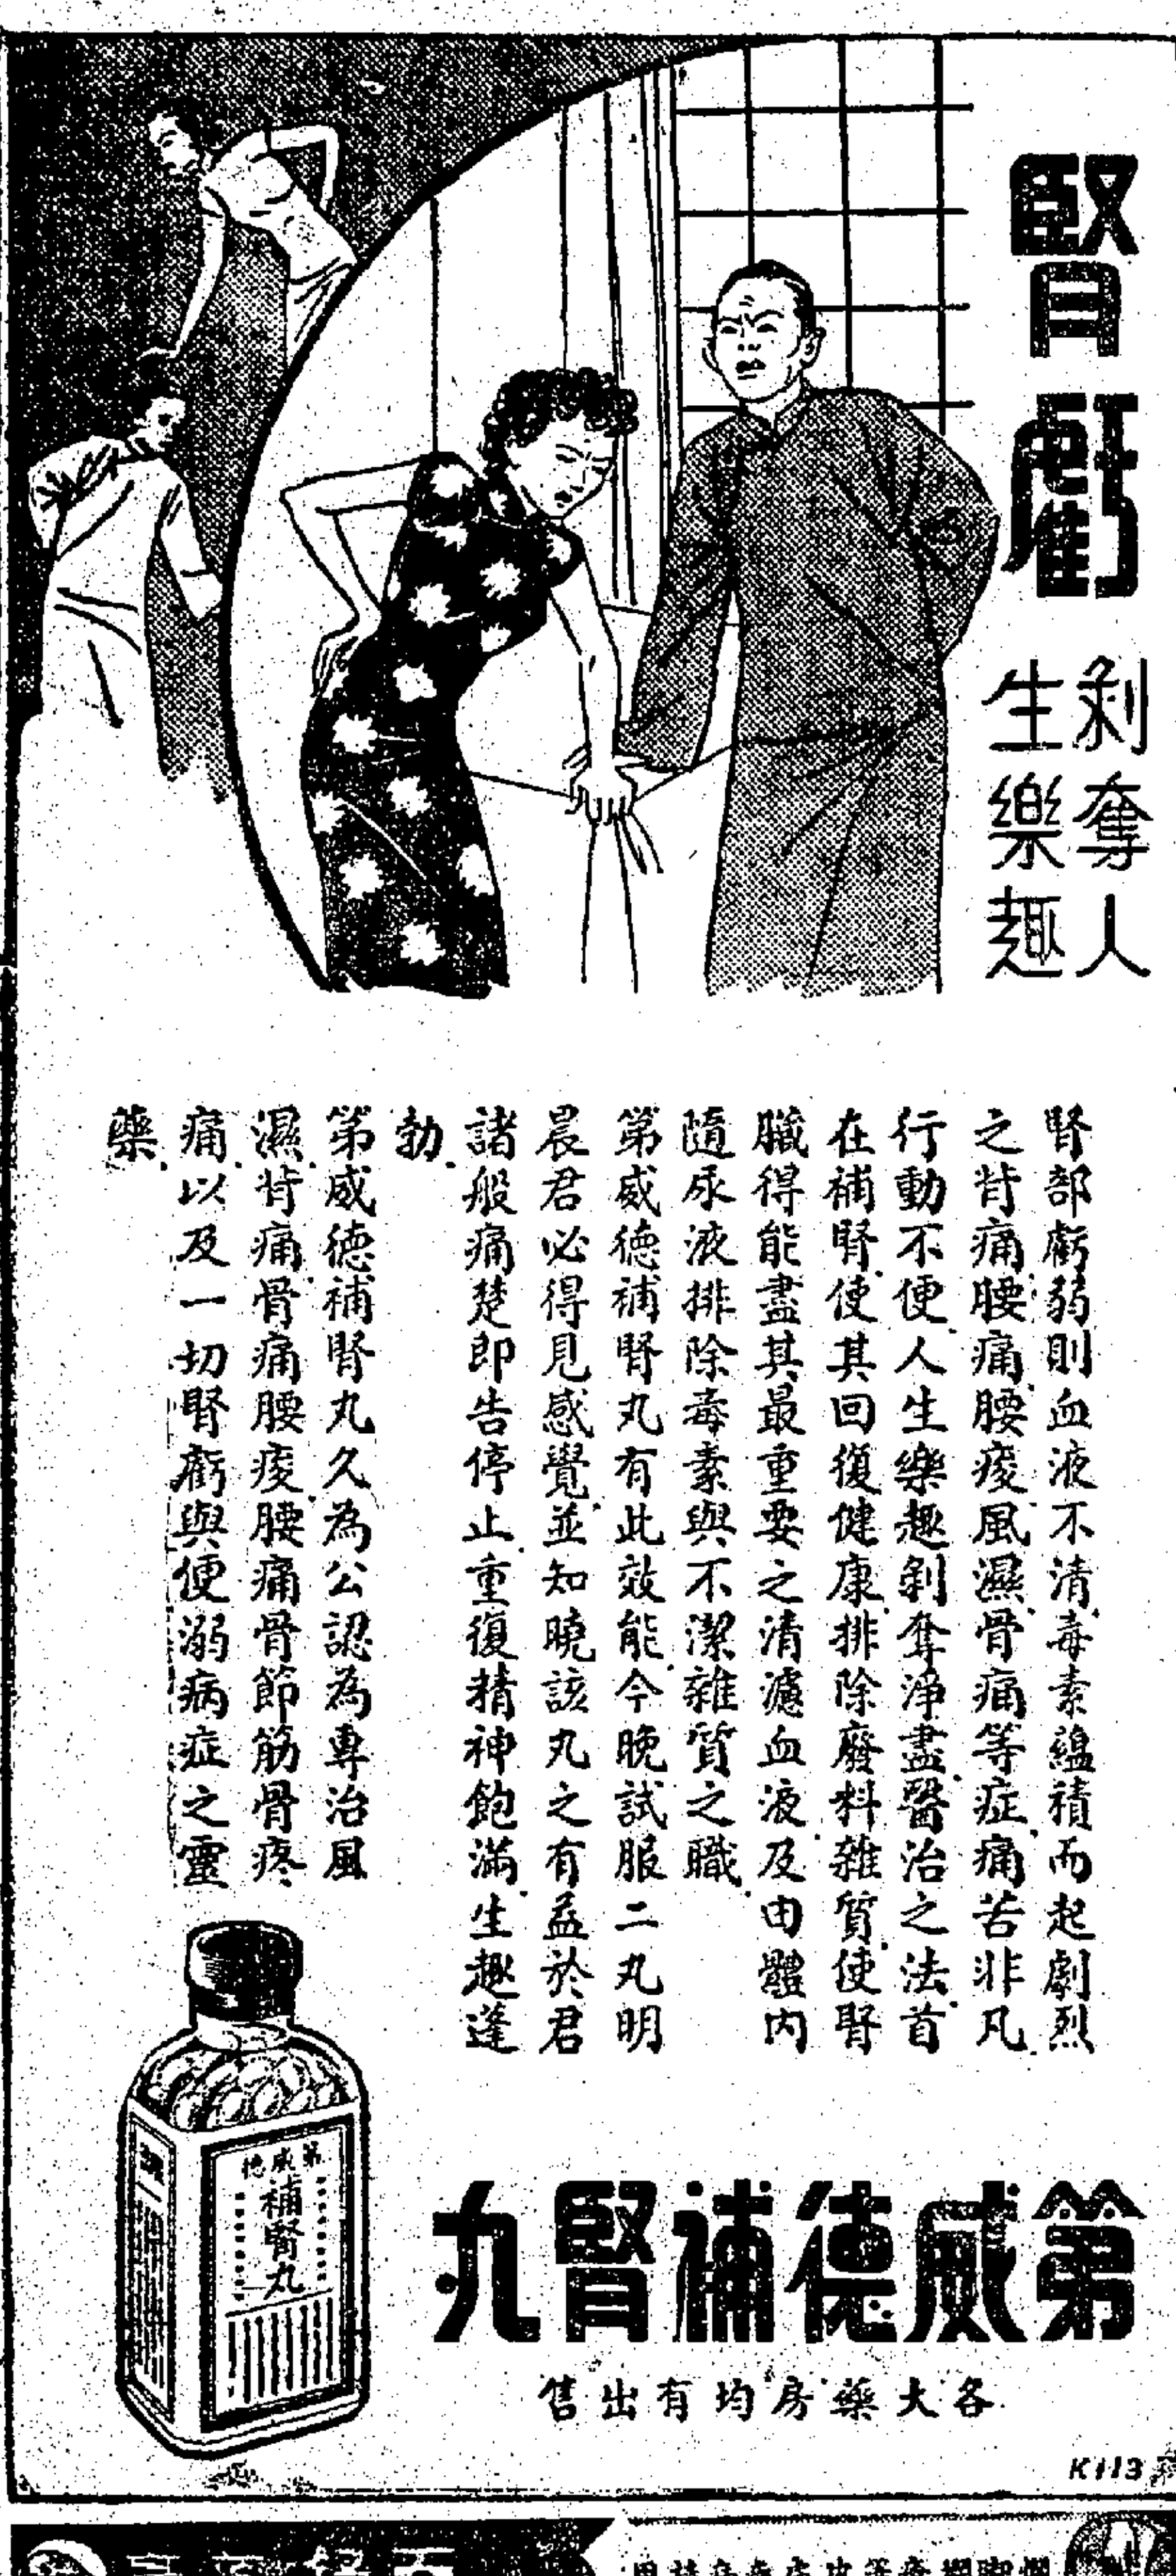 腎虧
剝奪人
生樂趣
腎部虧弱則血液不清毒素蘊積而起劇烈
之背痛腰痛腰痠風濕骨痛等症痛苦非凡
行動不便人生樂趣剝奪淨盡醫治之法首
在補腎使其回復健康排除廢料雜質使腎
臟得能盡其最重要之清濾血液及由體內
隨尿液排除毒素與不潔雜質之職
第威德補腎丸有此效能今晚試服二丸明
晨君必得見感覺並知曉該丸之有益於君
諸般痛楚即告停止重復精神飽滿生趣蓬
勃
第威德補腎丸久為公認為專治風
濕背痛骨痛腰痠腰痛骨節筋骨疼
痛以及一切腎虧與便溺病症之靈
藥
第威德
補腎丸
第威德補腎丸
各大藥房均有出售
K113